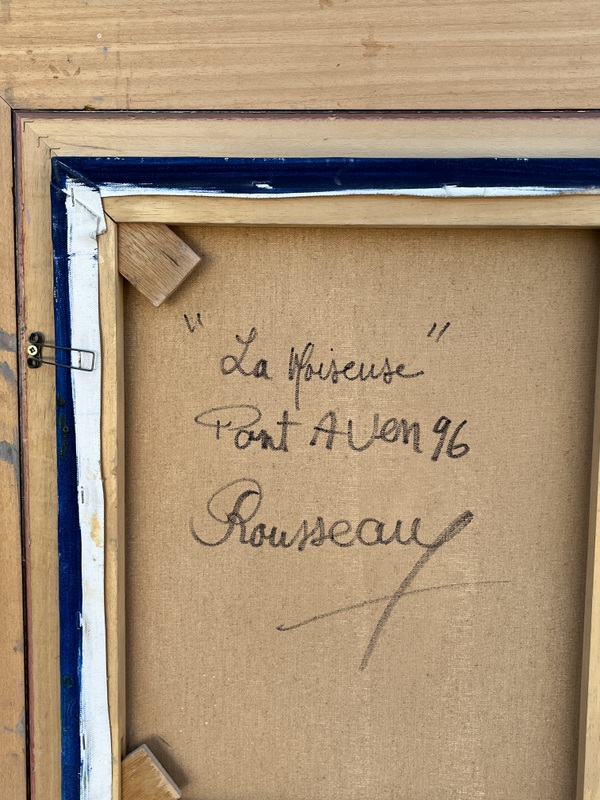 " La Noiseuse "
Pont AVen 96
Rousseau